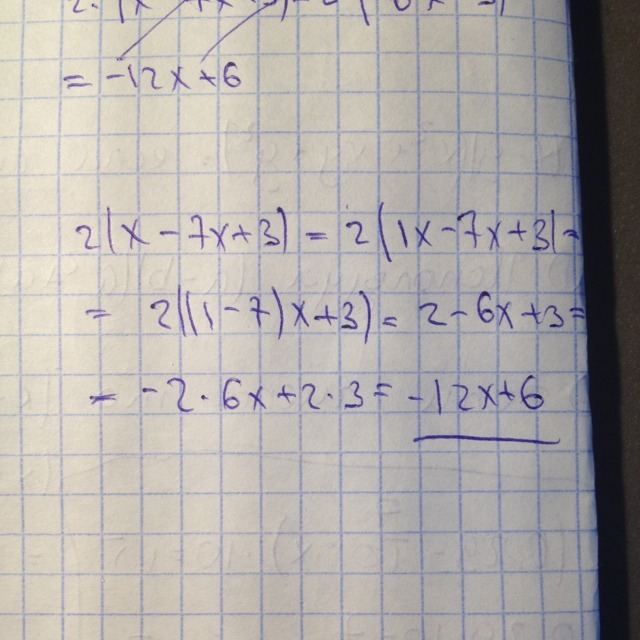 = -12x+6
2(x-7x+3) = 2(1x-7x+3) =
= 2((1-7)x+3) = 2-6x+3 =
= -2·6x+2·3 = -12x+6